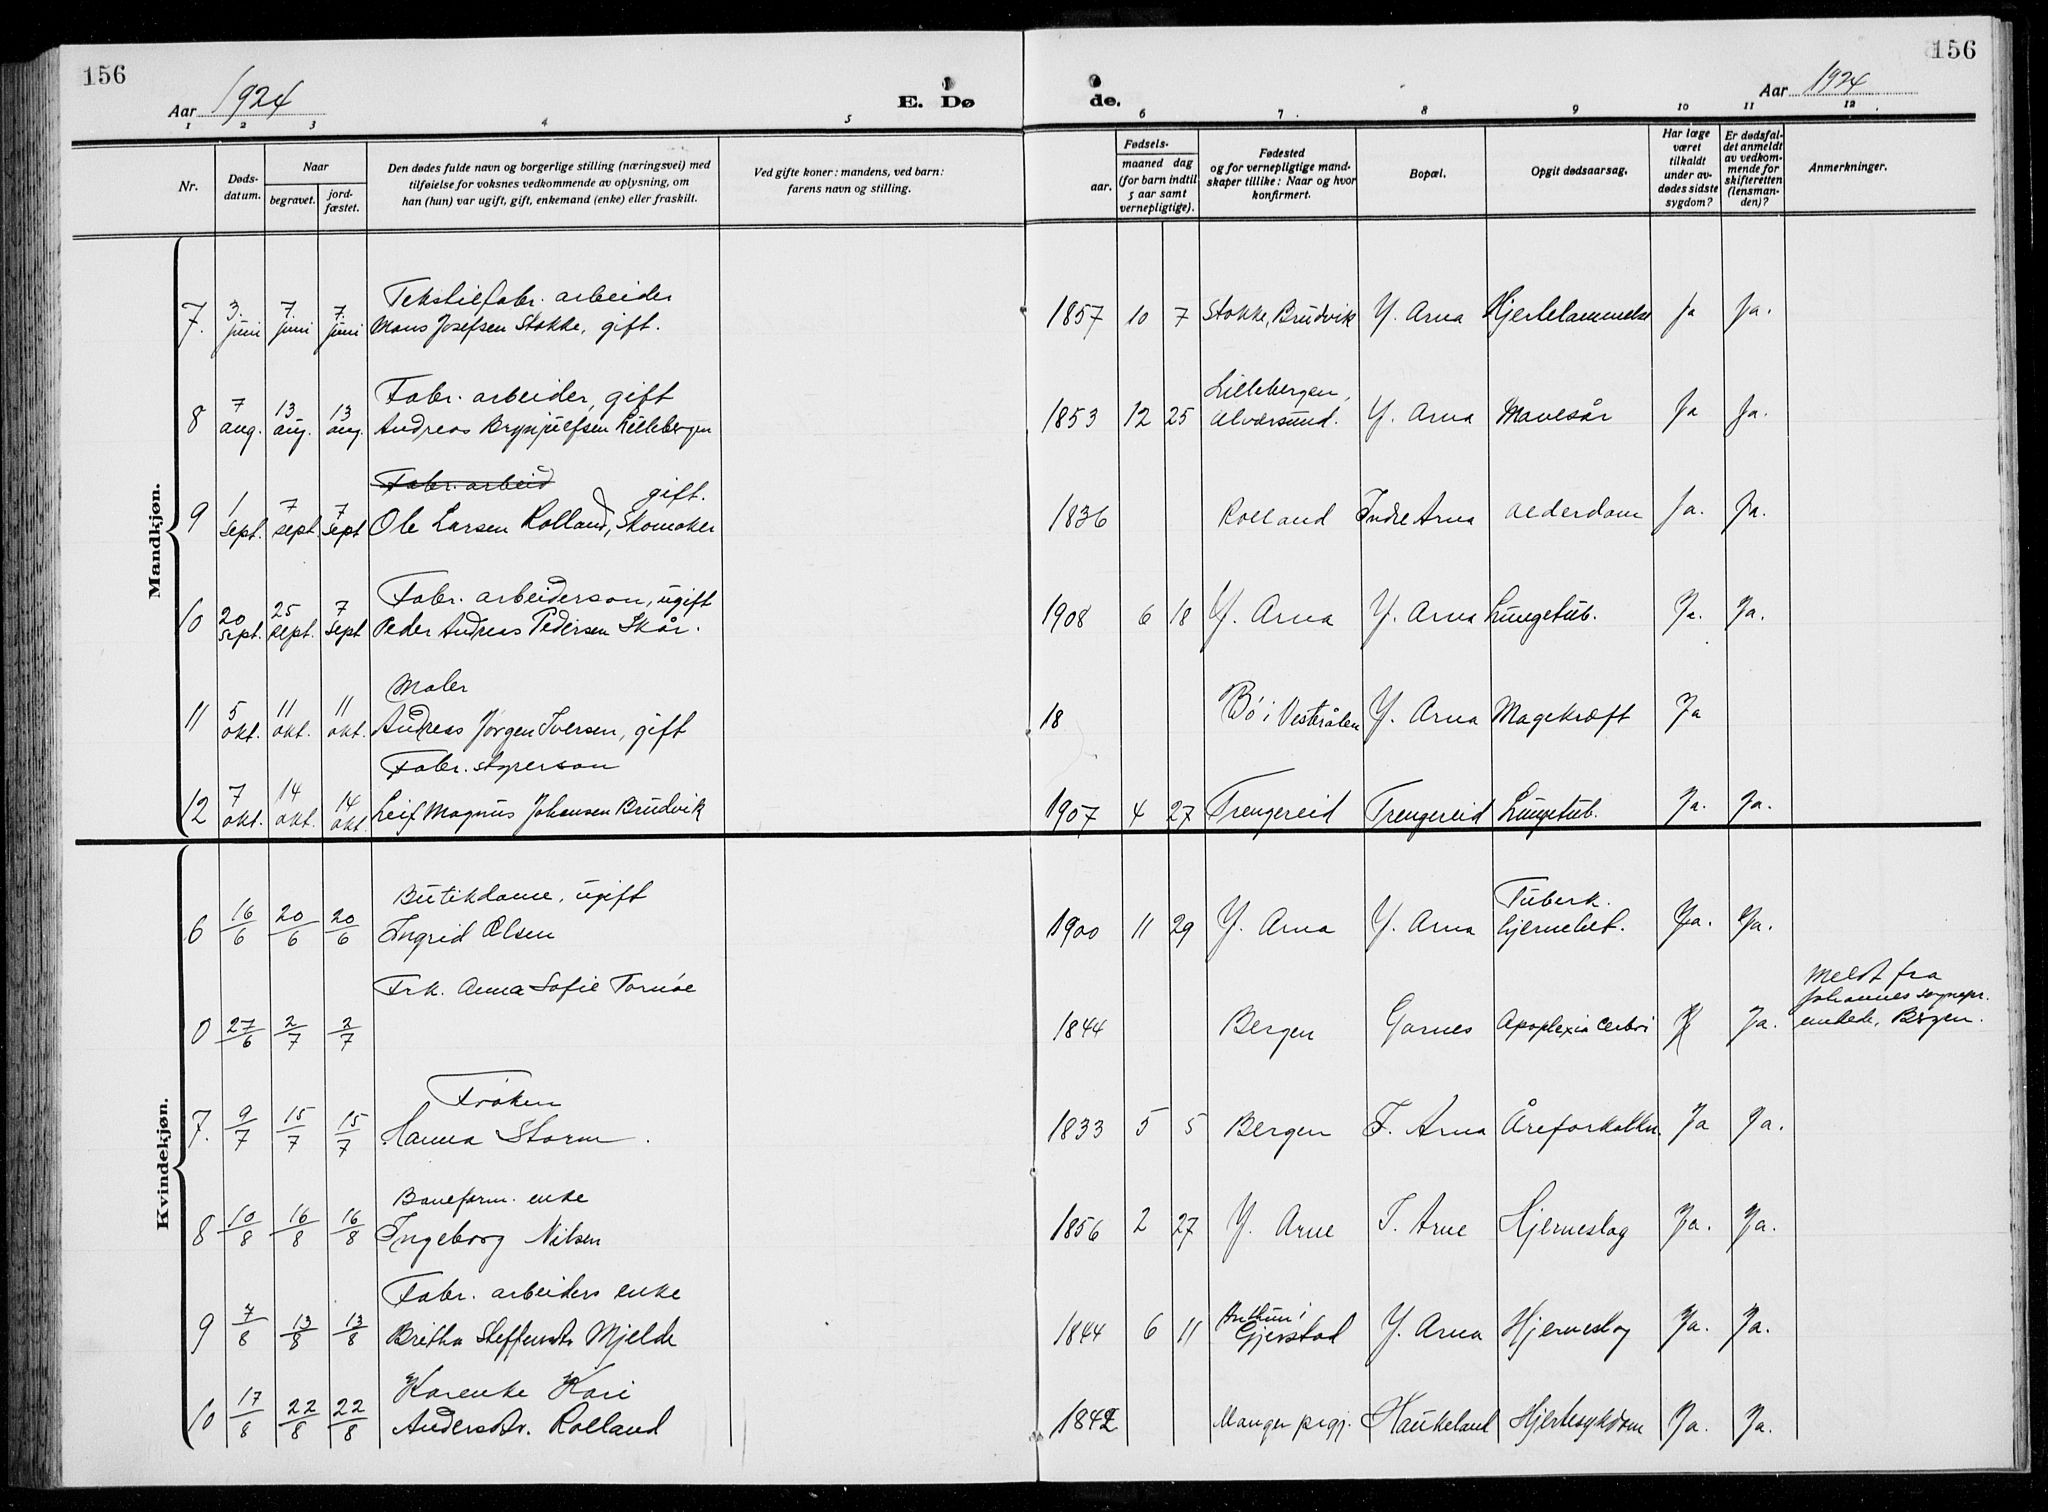 156
156
Aar 1924
E. Dø
de.
Aar 1924
1 2 3 4 5 6 7 8 9 10 11 12
Nr.
Døds-
datum.
Naar
begravet.
jord-
fæstet.
Den dødes fulde navn og borgerlige stilling (næringsvei) med
tilføielse for voksnes vedkommende av oplysning, om
han (hun) var ugift, gift, enkemand (enke) eller fraskilt.
Ved gifte koner: mandens, ved barn:
farens navn og stilling.
Fødsels-
aar.
maaned dag
(for barn indtil
5 aar samt
vernepligtige).
Fødested
og for vernepligtige mand-
skaper tillike: Naar og hvor
konfirmert.
Bopæl.
Opgit dødsaarsag.
Har læge
været
tilkaldt
under av-
dødes sidste
sygdom?
Er dødsfal-
det anmeldt
av vedkom-
mende for
skifteretten
(lensman-
den)?
Anmerkninger.
Mandkjøn.
Tekstilfabr. arbeider
7. 3. juni 7. juni 7. juni Mons Josefsen Stokke, gift. 1857 10 7 Stokke, Brudvik Y. Arna Hjertelammelse Ja Ja.
Fabr. arbeider, gift Lillebergen,
8 7 aug. 13 aug. 13 aug. Andreas Brynjulfsen Lillebergen 1853 12 25 Alversund. Y. Arna Mavesår Ja Ja.
Fabr. arbeid gift.
9 1 Sept. 7 sept 7 Sept Ole Larsen Rolland, Skomaker 1836 Rolland Indre Arna Alderdom Ja. Ja.
Fabr. arbeiderson, ugift
10 20 sept. 25 sept. 7 Sept Peder Andreas Pedersen Skår. 1908 6 18 Y. Arna Y. Arna Lungetub. Ja. Ja.
Maler
11 5 okt. 11 okt. 11 okt. Andreas Jørgen Iversen, gift 18 Bø i Vesterålen Y. Arna Magekræft Ja
Fabr.
12 7 okt. 14 okt. 14 okt. Leif Magnus Johansen Brudvik 1907 4 27 Trengereid Trengereid Lungetub. Ja. Ja.
Kvindekjøn.
Butikdame, ugift Tuberk.
6 16/6 20/6 20/6 Ingrid Olsen 1900 11 29 Y. Arna Y. Arna hjernebet. Ja. Ja.
Frk. Anna Sofie Tornøe Meldt fra
Johannes sognepr.
0 27/6 2/7 2/7 1844 Bergen Garnes Apoplexia Cerebri Ja. embede, Bergen.
Frøken
7. 9/7 15/7 15/7 Hanna Storm. 1833 5 5 Bergen I. Arna Åreforkalkn. Ja Ja.
Baneform. enke
8 10/8 16/8 16/8 Ingeborg Nilsen 1856 2 27 Y. Arne I. Arne Hjerneslag Ja. Ja.
Fabr. arbeiders enke
9 7/8 13/8 13/8 Britha Steffensdtr Mjelde 1844 6 11 Gjerstad Y. Arna Hjerneslag Ja. Ja.
Kårenke Kari
10 17/8 22/8 22/8 Andersdtr. Rolland 1842 Manger prgj. Haukeland Hjertesykdom Ja. Ja.